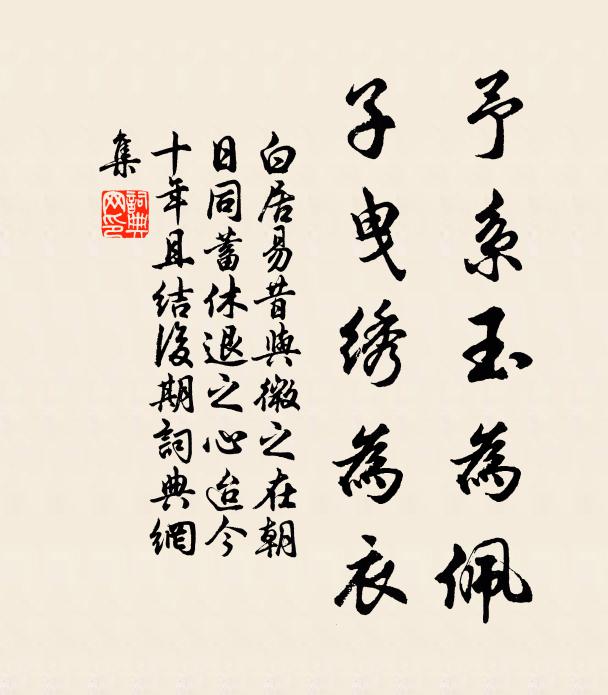 予系玉為佩
子曳绣為衣
白居易昔與微之在朝
日同蓄休退之心迨今
十年且结後期詞典網
集
詞典
网印